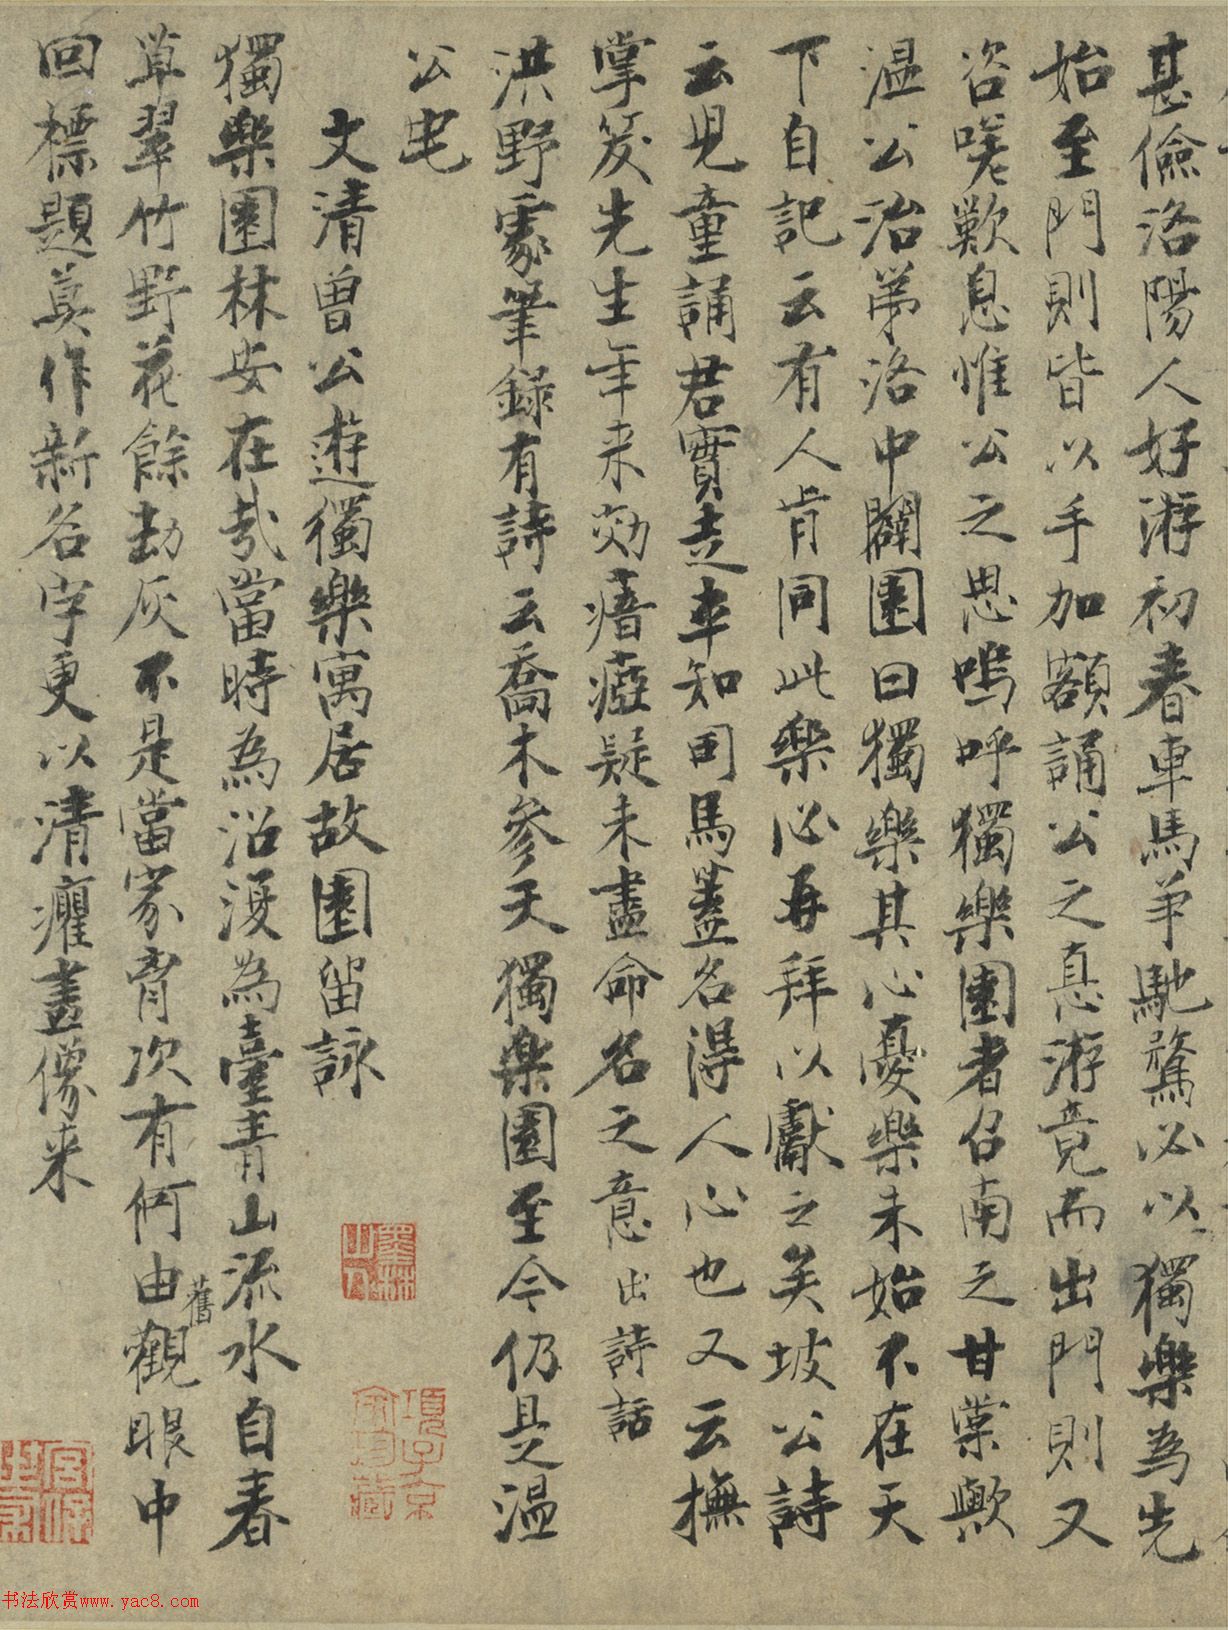 甚儉洛陽人好游初春車馬爭馳騖必以獨樂為先
始至門則皆以手加額誦公之息游竟而出門則又
咨嗟歎息惟公之思嗚呼獨樂園者召南之甘棠歟
溫公治第洛中闢園曰獨樂其心憂樂未始不在天
下自記云有人肯同此樂必再拜以獻之矣坡公詩
云兒童誦君實走卒知司馬蓋名得人心也又云撫
掌笑先生年來効瘖瘂疑未盡命名之意出詩話
洪野處筆錄有詩云喬木參天獨樂園至今仍是溫
公宅
文清曾公遊獨樂寓居故園留詠
獨樂園林安在哉當時為沼漫為臺青山流水自春
草翠竹野花餘劫灰不是當家胷次有何由觀舊眼中
回標題莫作新名字更以清癯畫像來
墨林山人
項子京家珍藏
书法欣赏www.yac8.com